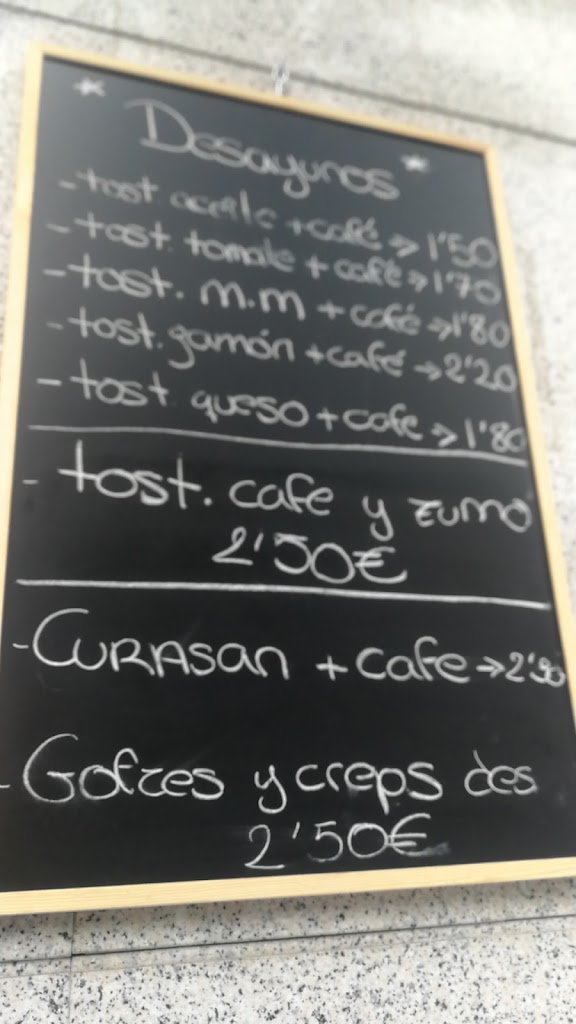 * Desayunos *
- tost. aceite + café => 1'50
- tost. tomate + café => 1'70
- tost. m.m + café => 1'80
- tost. jamón + café => 2'20
- tost queso + cafe => 1'80
- tost. cafe y zumo
2'50€
- CURASAN + cafe =>
Gofres y creps des
2'50€